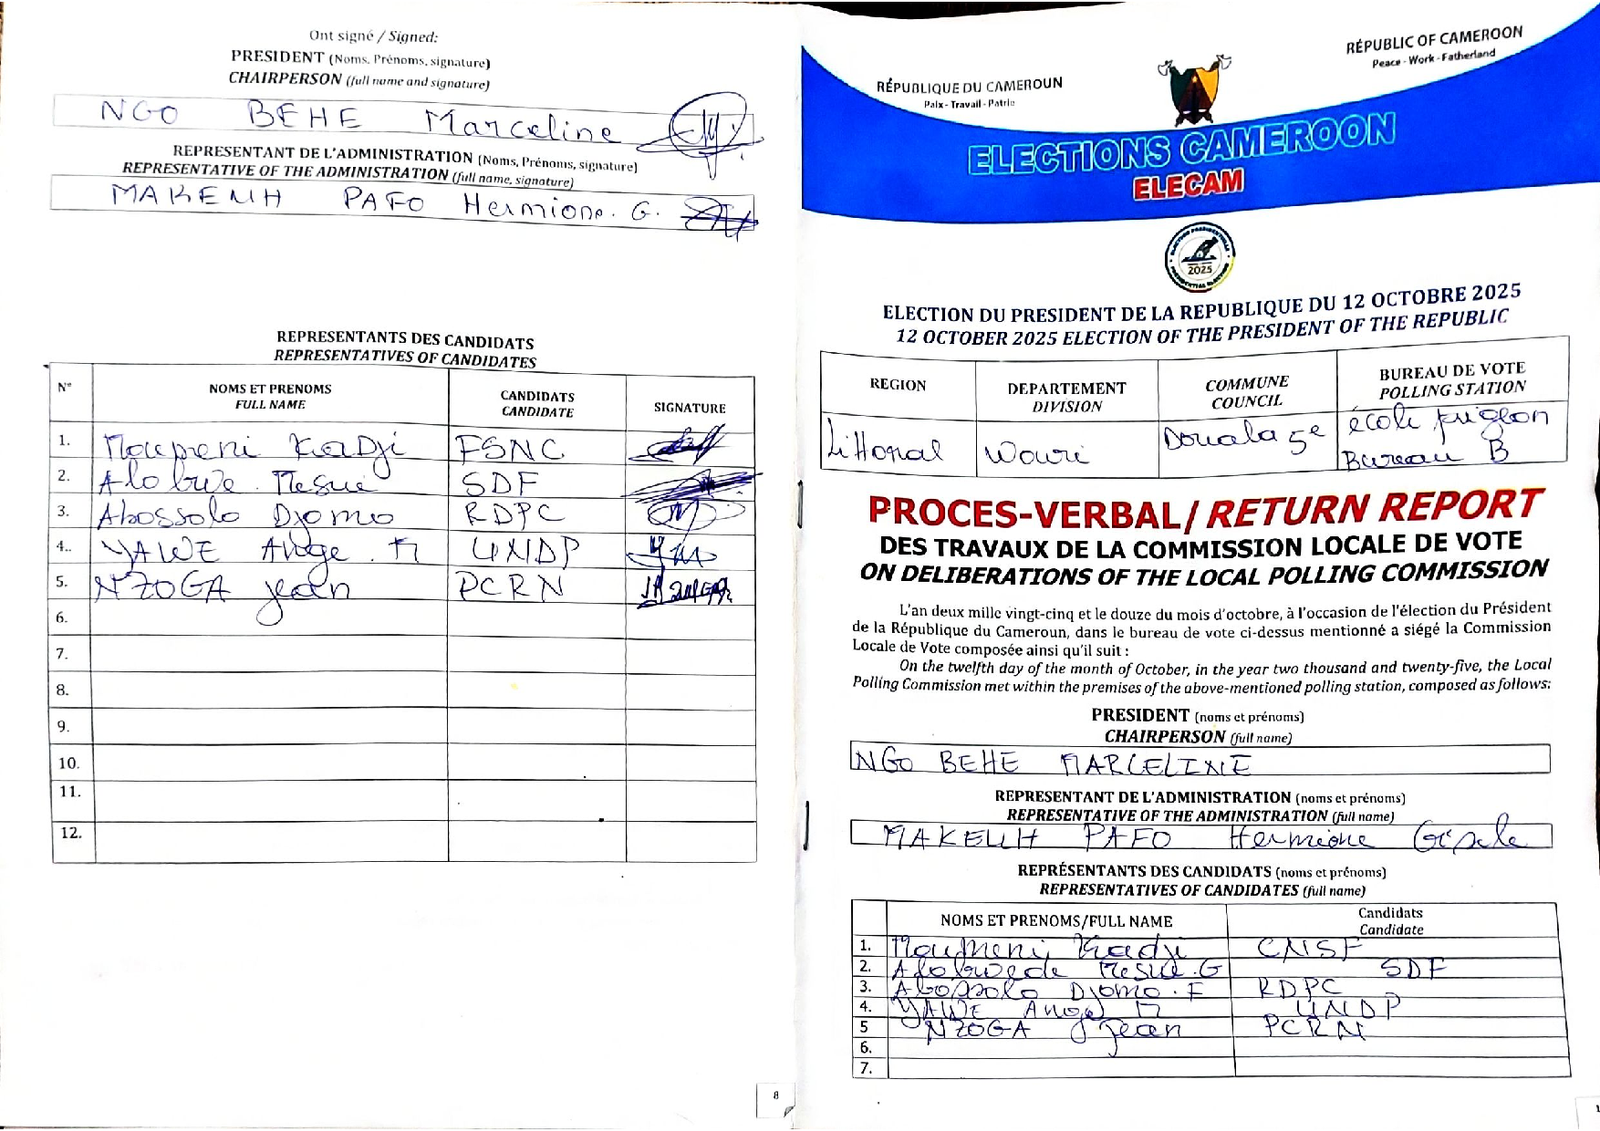 Ont signé / Signed:
PRESIDENT (Noms, Prénoms, signature)
CHAIRPERSON (full name and signature)
NGO BEHE Marceline
REPRESENTANT DE L'ADMINISTRATION (Noms, Prénoms, signature)
REPRESENTATIVE OF THE ADMINISTRATION (full name, signature)
MAKEUH PAFO Hermione. G.
REPRESENTANTS DES CANDIDATS
REPRESENTATIVES OF CANDIDATES
N° NOMS ET PRENOMS FULL NAME CANDIDATS CANDIDATE SIGNATURE
1. Moupeni Kadji FSNC
2. Alobwe. Mesue SDF
3. Abossolo Djomo RDPC
4.. YAWE Ange. M UNDP
5. NZOGA jean PCRN
6.
7.
8.
9.
10.
11.
12.
8
RÉPUBLIQUE DU CAMEROUN
Paix - Travail - Patrie
RÉPUBLIC OF CAMEROON
Peace - Work - Fatherland
ELECTIONS CAMEROON
ELECAM
ELECTION PRESIDENTIELLE
2025
PRESIDENTIAL ELECTION
ELECTION DU PRESIDENT DE LA REPUBLIQUE DU 12 OCTOBRE 2025
12 OCTOBER 2025 ELECTION OF THE PRESIDENT OF THE REPUBLIC
REGION DEPARTEMENT DIVISION COMMUNE COUNCIL BUREAU DE VOTE POLLING STATION
Littoral Wouri Douala 5e école pigeon Bureau B
PROCES-VERBAL/ RETURN REPORT
DES TRAVAUX DE LA COMMISSION LOCALE DE VOTE
ON DELIBERATIONS OF THE LOCAL POLLING COMMISSION
L'an deux mille vingt-cinq et le douze du mois d'octobre, à l'occasion de l'élection du Président
de la République du Cameroun, dans le bureau de vote ci-dessus mentionné a siégé la Commission
Locale de Vote composée ainsi qu'il suit :
On the twelfth day of the month of October, in the year two thousand and twenty-five, the Local
Polling Commission met within the premises of the above-mentioned polling station, composed as follows:
PRESIDENT (noms et prénoms)
CHAIRPERSON (full name)
NGO BEHE MARCELINE
REPRESENTANT DE L'ADMINISTRATION (noms et prénoms)
REPRESENTATIVE OF THE ADMINISTRATION (full name)
MAKEUH PAFO Hermione Gisele
REPRÉSENTANTS DES CANDIDATS (noms et prénoms)
REPRESENTATIVES OF CANDIDATES (full name)
NOMS ET PRENOMS/FULL NAME Candidats Candidate
1. Moumeni Kadji CNSF
2. Alobwede Mesue. G SDF
3. Abossolo Djomo. F RDPC
4. YAWE Ange M UNDP
5 NZOGA jean PCRN
6.
7.
1